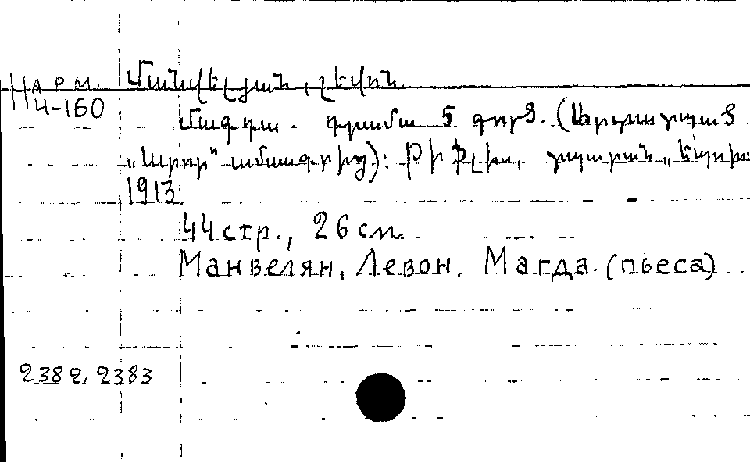 Н АРМ. Մանվելյան, Լեվոն.
Ч-160
Մագդա. դրամա 5 գործ. (Արտատպած
„Արոր“ ամսագրից): Թիֆլիս, տպարան „Էսպերա
1913
44 стр., 26 см.
Манвелян, Левон. Магда. (пьеса)
2382, 2383